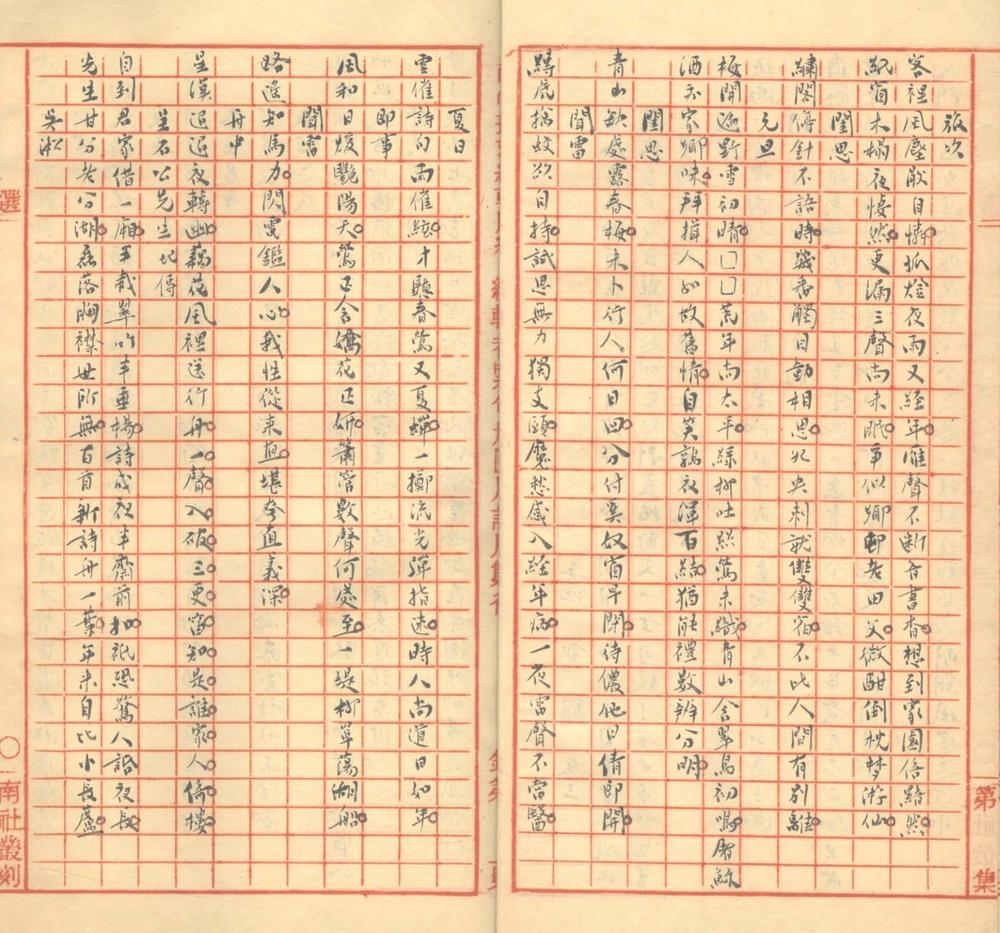 旅次
客裡風塵厭自憐孤燈夜雨又經年雁聲不斷音書杳想到家園倍黯然
紙窗木榻夜悽然更漏三聲尚未眠爭似鄉鄰老田父微酣倒枕夢游仙
閨思
繡閣停針不語時幾番觸目動相思鴛央刺就雙雙宿不比人間有別離
元旦
梅開遍野雪初晴囗囗荒年尚太平綠柳吐絲鶯未織青山含翠鳥初鳴屠穌
酒亦家鄉味拜揖人如故舊情自笑鶉衣渾百結猶能禮數辨分明
閨思
青山缺處露春梅未卜行人何日回分付奚奴窗早閉待儂他日倩郎開
聞雷
蟳虎擒蛟欲自持試思無力獨支頤魔愁感入經年病一夜雷聲不當醫
夏日
雲催詩句雨催絃才聽春鶯又夏蟬一擲流光彈指速時人尚道日如年
即事
風和日煖艷陽天鶯正含嬌花正妍簫管數聲何處至一堤柳單蕩湖船
聞雷
路遙知馬力閃電鑑人心我性從來直堪夸直義深
舟中
星漢迢迢夜轉幽藕花風裡送行舟一聲入破三更笛知是誰家人倚樓
呈石公先生地傳
自到君家借一廂半栽翠竹半垂楊詩成夜半齋前扣祇恐驚人語夜長
先生甘分老分湖磊落胸襟世所無百首新詩舟一葉年來自比小長蘆
吳淞
選
〇
南社叢刻
第
集